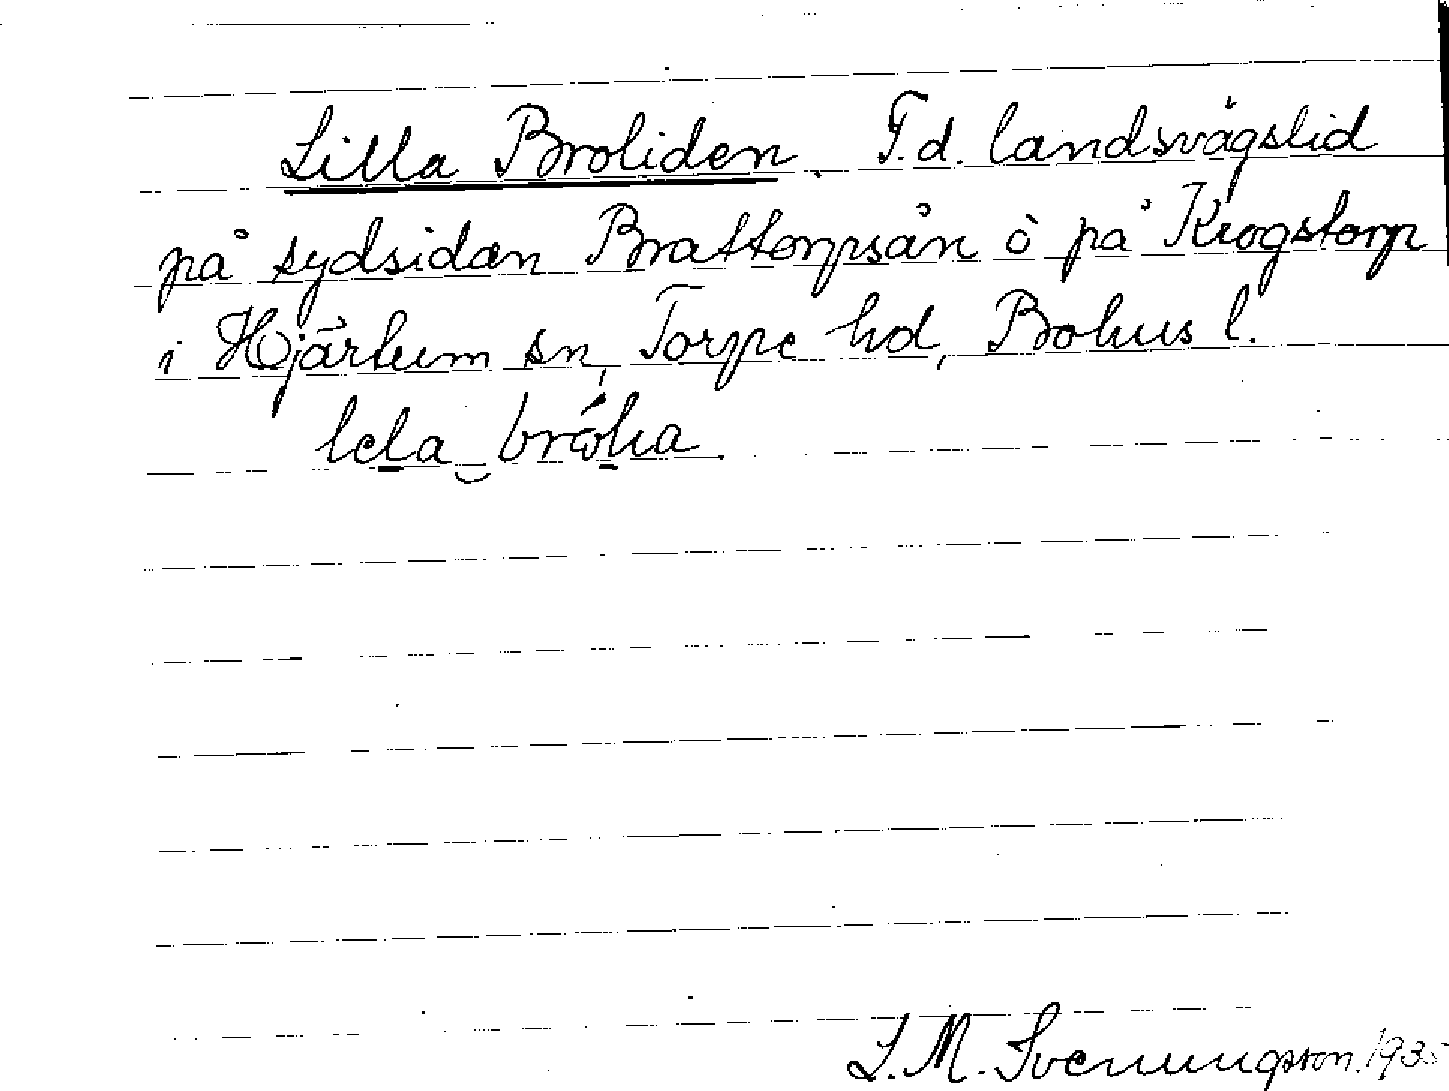 Lilla Broliden. F.d. landsvägslid
på sydsidan Brattorpsån ò på Krogstorp
i Hjärtum sn, Torpe hd, Bohus l.
lela
L. M. Svenungsson. 1935